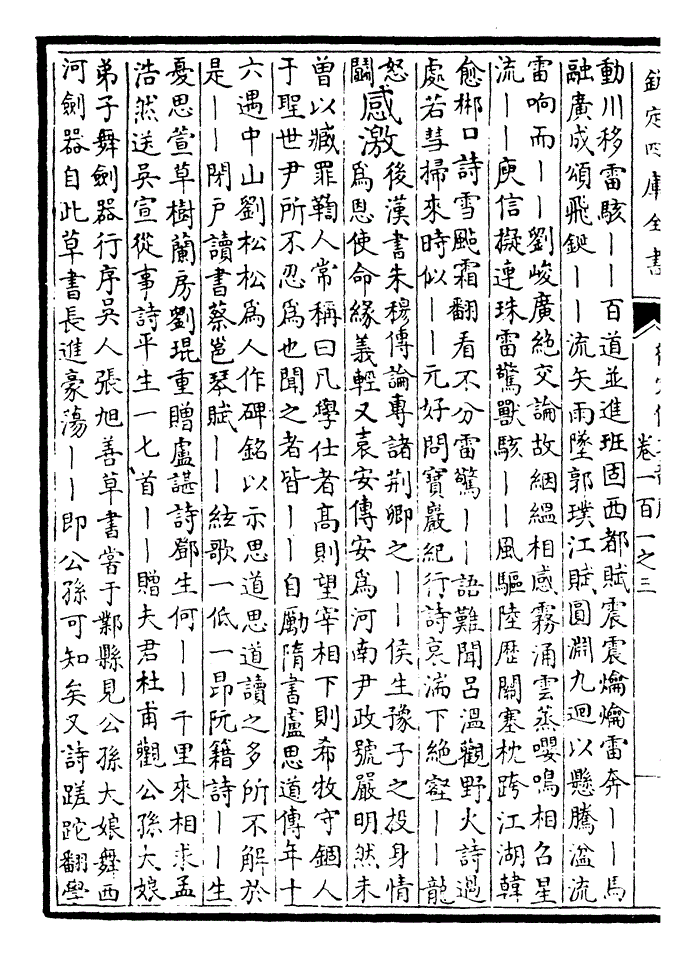 欽定四庫全書
卷一百一之三
動川移雷駭丨丨百道並進班固西都賦震震爚爚雷奔丨丨馬
融廣成頌飛鋋丨丨流矢雨墜郭璞江賦圓淵九迴以懸騰湓流
雷呴而丨丨劉峻廣絶交論故絪縕相感霧涌雲蒸嚶鳴相召星
流丨丨庾信擬連珠雷驚獸駭丨丨風驅陸歷關塞枕跨江湖韓
愈郴口詩雪颭霜翻看不分雷驚丨丨語難聞呂溫觀野火詩過
處若彗掃來時似丨丨元好問寶巖紀行詩哀湍下絶壑丨丨龍
怒
鬭
感激
後漢書朱穆傳論專諸荆卿之丨丨侯生豫子之投身情
為恩使命緣義輕又袁安傳安為河南尹政號嚴明然未
曽以臧罪鞫人常稱曰凡學仕者高則望宰相下則希牧守錮人
于聖世尹所不忍為也聞之者皆丨丨自勵隋書盧思道傳年十
六遇中山劉松松為人作碑銘以示思道思道讀之多所不解於
是丨丨閉户讀書蔡邕琴賦丨丨絃歌一低一昂阮籍詩丨丨生
憂思萱草樹蘭房劉琨重贈盧諶詩鄧生何丨丨千里來相求孟
浩然送吳宣從事詩平生一匕首丨丨贈夫君杜甫觀公孫大娘
弟子舞劍器行序吳人張旭善草書嘗于鄴縣見公孫大娘舞西
河劍器自此草書長進豪蕩丨丨即公孫可知矣又詩蹉跎翻學